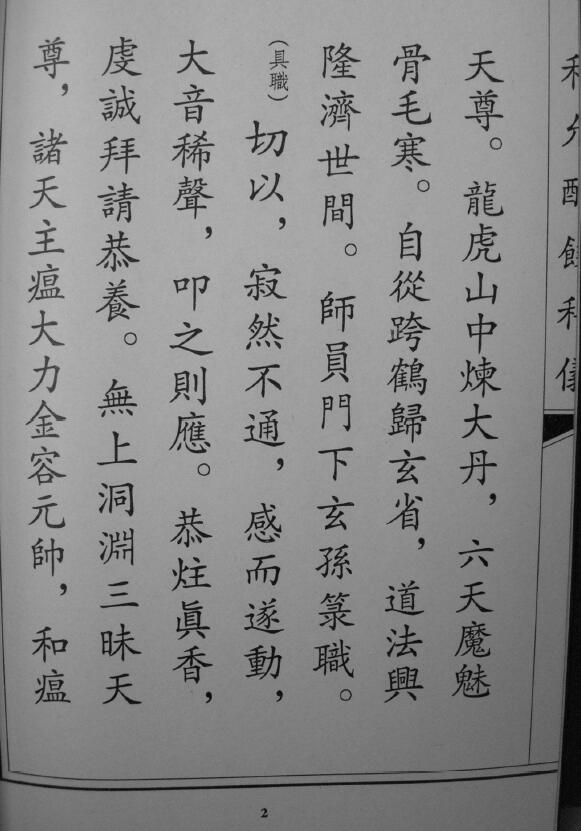 天尊。龍虎山中煉大丹，六天魔魅
骨毛寒。自從跨鶴歸玄省，道法興
隆濟世間。師員門下玄孫箓職。
（具職）切以，寂然不通，感而遂動，
大音稀聲，叩之則應。恭炷眞香，
虔誠拜請恭養。無上洞淵三昧天
尊，諸天主瘟大力金容元帥，和瘟
2